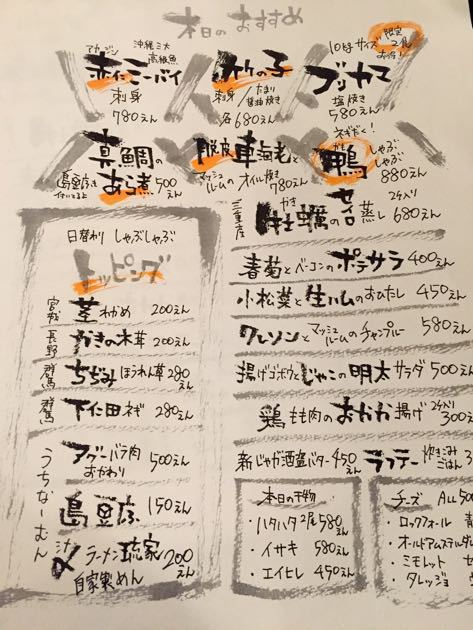 本日のおすすめ
アカジン 沖縄三大高級魚
赤仁ミーバイ
刺身
780えん
カワの子
刺身/たまり醤油焼き
各680えん
限定2尾
お早!
10kgサイズ
ブリカマ
塩焼き
580えん
真鯛の
あら煮 500えん
島豆腐も
付いてるよ
車海老と
マッシュルームのオイル焼き
780えん
ネギだく!
かも
鴨しゃぶしゃぶ
880えん
三重産
かき
牡蠣のセイロ蒸し 2ケ入り 680えん
春菊とベーコンのポテサラ 400えん
小松菜と生ハムのおひたし 450えん
クレソンとマッシュルームのチャンプルー 580えん
揚げゴボウとじゃこの明太サラダ 500えん
鶏もも肉のおかか揚げ 2ケ入り 300えん
新じゃが酒盗バター 450えん
ラフテー炊き込みごはん 3
日替わり しゃぶしゃぶ
トッピング
宮城 茎わかめ 200えん
長野 かきの木茸 200えん
群馬 ちぢみほうれん草 280えん
群馬 下仁田ネギ 280えん
うちなーむん
アグーバラ肉 おかわり 500えん
島豆腐 150えん
〆 ラーメン琉家 自家製めん 200えん
本日の干物
・ハタハタ2尾 580えん
・イサキ 580えん
・エイヒレ 450えん
チーズ ALL 500
・ロックフォール 青
・オールドアムステルダム
・ミモレット セ
・タレッジョ